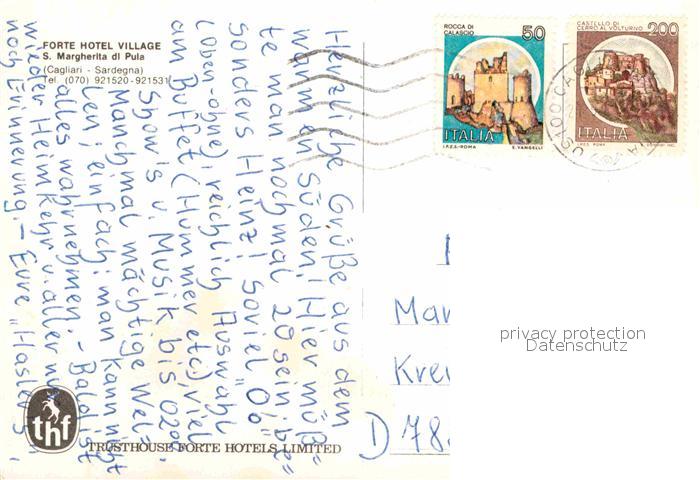 FORTE HOTEL VILLAGE
S. Margherita di Pula
(Cagliari - Sardegna)
Tel. (070) 921520-921531
ROCCA DI CALASCIO
50
ITALIA
I.P.Z.S.-ROMA E. VANGELLI
CASTELLO DI CERRO AL VOLTURNO
200
ITALIA
I.P.Z.S. ROMA
Herzliche Grüße aus dem
warmen Süden! Hier müß=
te man nochmal 20 sein, be=
sonders Heinz! Soviel "O/o"
(oben-ohne), reichlich Auswahl
am Buffet (Hummer etc.) viel
Show's u. Musik bis 02°°.
Manchmal mächtige Wel=
len; einfach: man kann nicht
alles wahrnehmen. - Bald ist
wieder Heimkehr u. aller nur
noch Erinnerung. - Eure "Hasler's".
Mar
Krei
D 78
privacy protection
Datenschutz
thf
TRUSTHOUSE FORTE HOTELS LIMITED